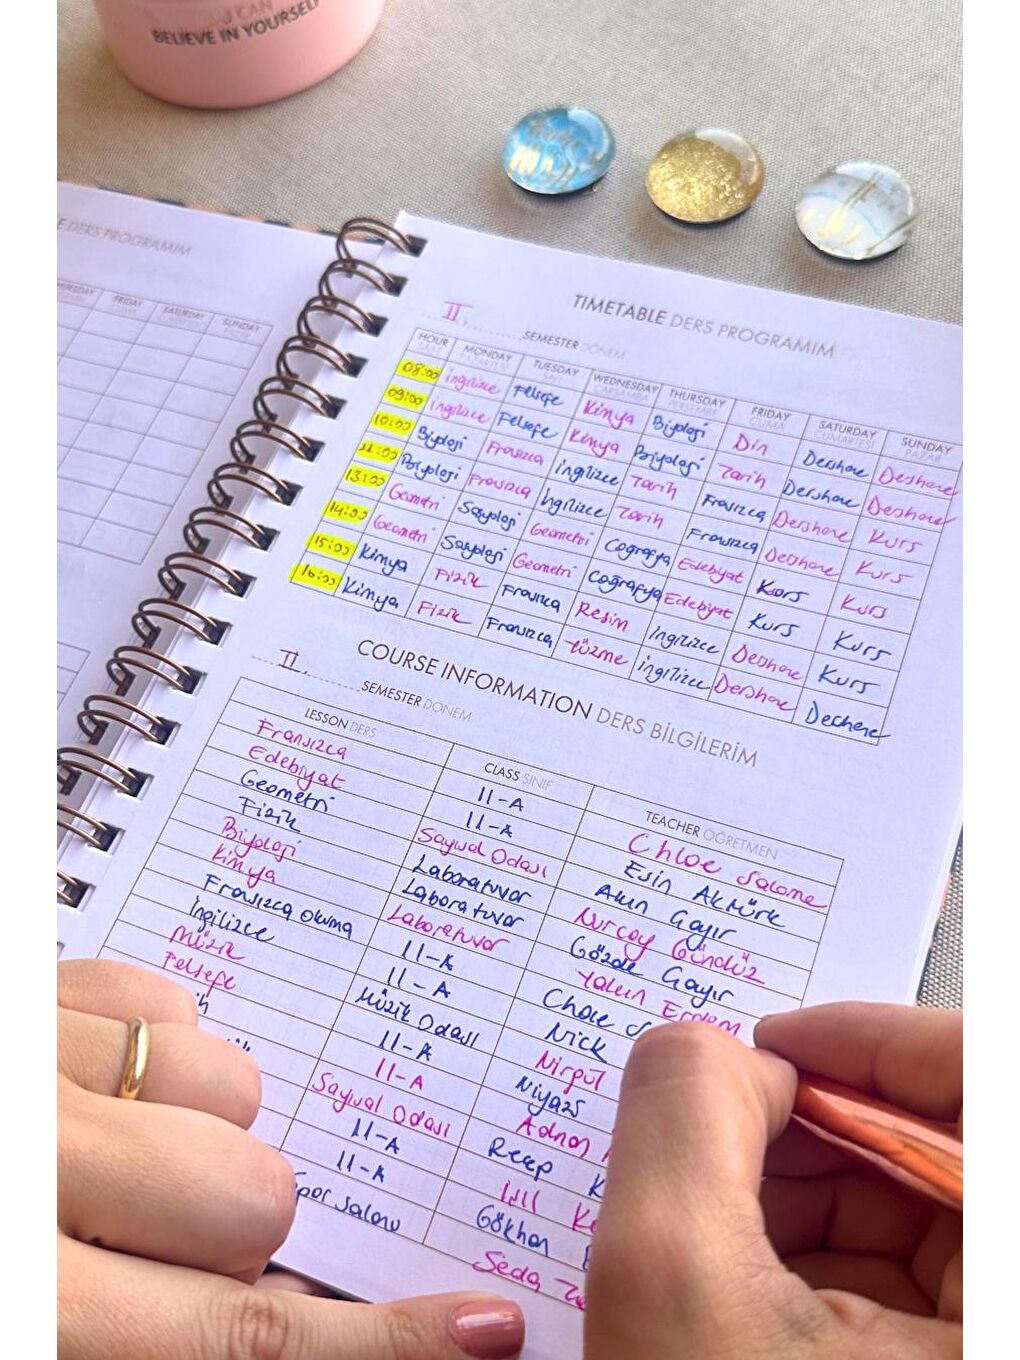 YOU CAN
BELIEVE IN YOURSELF
E DERS PROGRAMIM
THURSDAY FRIDAY SATURDAY SUNDAY
CUMA CUMARTESİ PAZAR
TIMETABLE DERS PROGRAMIM
II. SEMESTER DÖNEM
HOUR MONDAY TUESDAY WEDNESDAY THURSDAY FRIDAY SATURDAY SUNDAY
SAAT PAZARTESİ SALI ÇARŞAMBA PERŞEMBE CUMA CUMARTESİ PAZAR
08:00 ingilizce Felsefe Kinya Biyoloji Din Dershane Dershane
09:00 ingilizce Felsefe Kinya Biyoloji Tarih Dershane Dershane
10:00 Biyoloji Fransızca ingilizce Tarih Fransızca Dershane Kurs
11:00 Biyoloji Fransızca ingilizce Tarih Fransızca Dershane Kurs
13:00 Geometri Sosyoloji Geometri Coğrafya Edebiyat Kurs Kurs
14:00 Geometri Sosyoloji Geometri Coğrafya Edebiyat Kurs Kurs
15:00 Kinya Fizik Fransızca Resim ingilizce Dershane Kurs
16:00 Kinya Fizik Fransızca Yüzme ingilizce Dershane Dershane
COURSE INFORMATION DERS BİLGİLERİM
II. SEMESTER DÖNEM
LESSON DERS CLASS SINIF TEACHER ÖĞRETMEN
Fransızca 11-A Chloe Salome
Edebiyat 11-A Esin Aktürk
Geometri Sayısal Odası Akın Gayır
Fizik Laboratuvar Nurcay Gündüz
Biyoloji Laboratuvar Gözde Gayır
Kinya Laboratuvar Yalın Erdem
Fransızca Okuma 11-A Chloe S
ingilizce 11-A Nick
Müzik Müzik Odası Nirgül
Felsefe 11-A Niyazi
ih 11-A Adnan
Sayısal Odası Recep K
11-A Ke
11-A Gökhan
Spor Salonu Seda